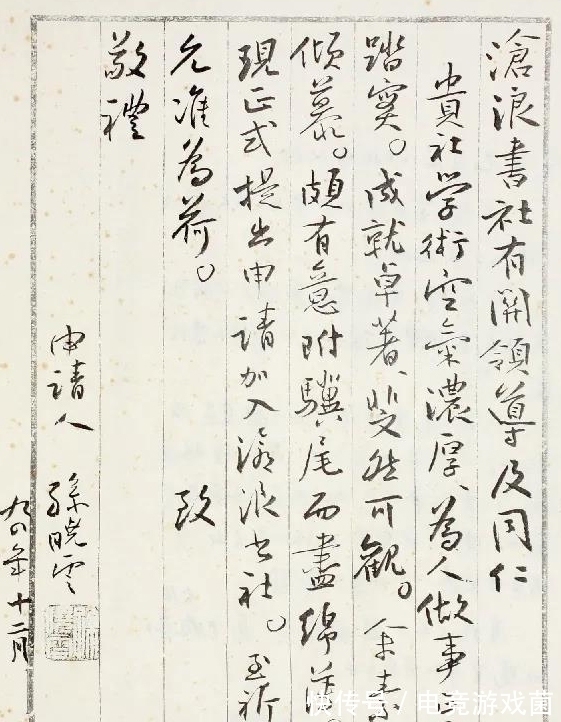 滄浪書社有關領導及同仁
貴社学術空氣濃厚、為人做事
踏實。成就卓著、斐然可觀。余素
傾慕。頗有意附驥尾而盡綿薄。
現正式提出申請加入滄浪書社。至祈
允准為荷。 致
敬禮
申請人 孫曉雲
九〇年十二月
快传号/电竞游戏菌